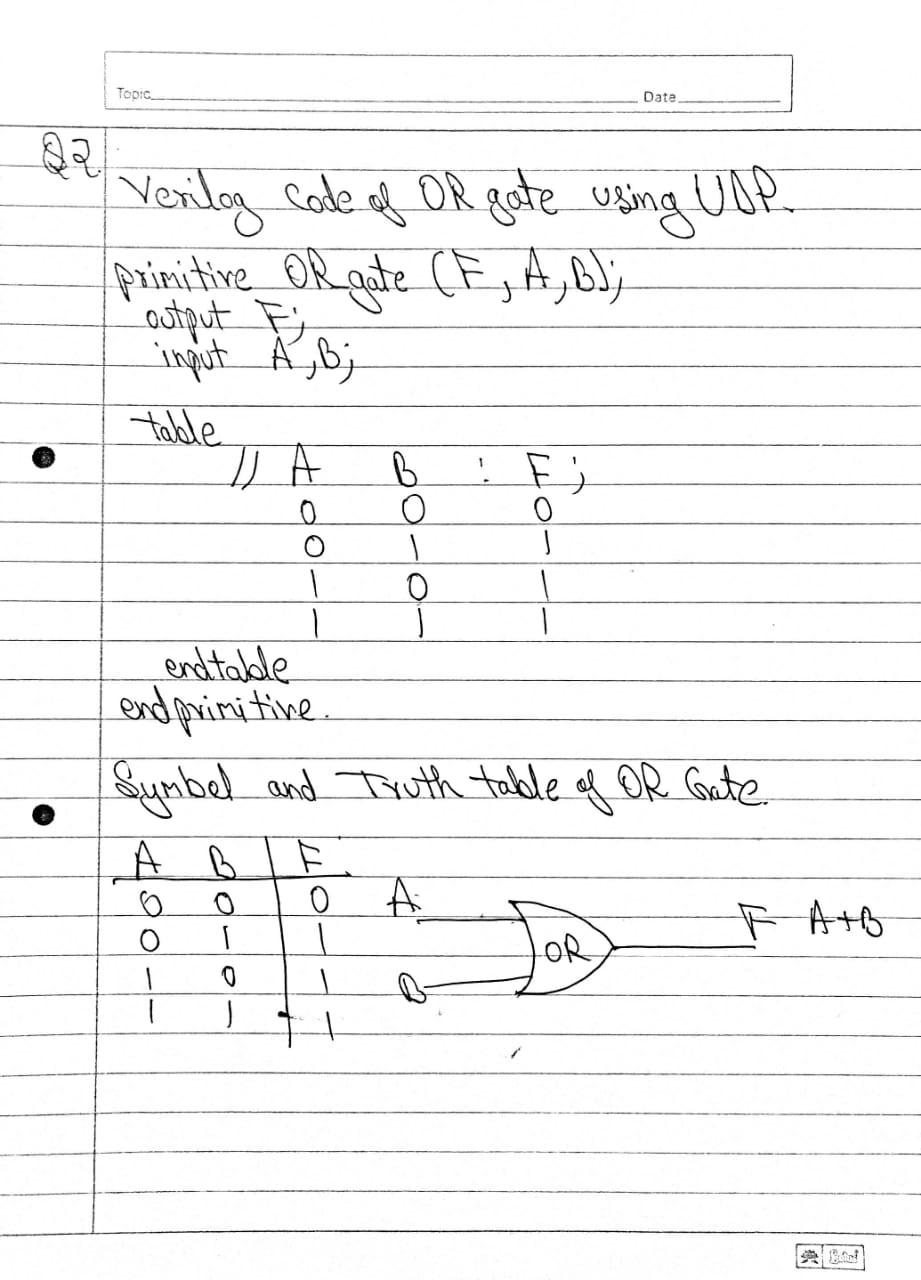 Topic
Date
Q2.
Verilog Code of OR gate using UDP.
primitive OR gate (F, A, B);
output F;
input A, B;
table
// A B : F ;
0 0 0
0 1 1
1 0 1
1 1 1
endtable
endprimitive.
Symbel and Truth table of OR Gate.
A B F
0 0 0
0 1 1
1 0 1
1 1 1
A
B
OR
F A+B